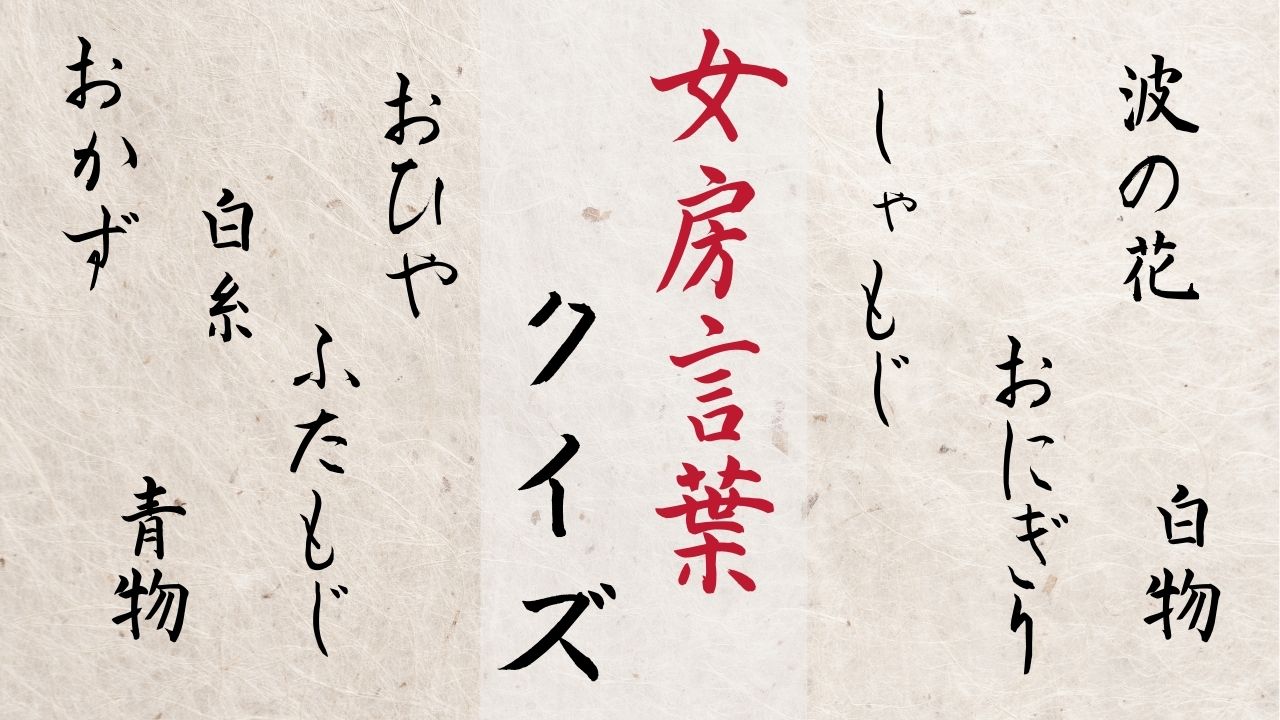 波の花
白物
おにぎり
しゃもじ
女房言葉
クイズ
おひや
ふたもじ
白糸
青物
おかず